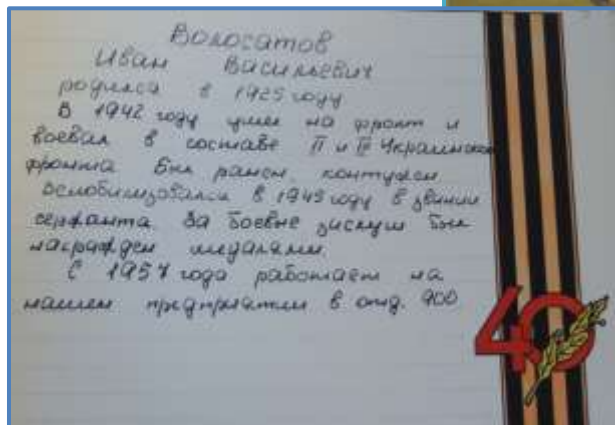 Волосатов
Иван Васильевич
родился в 1925 году
В 1942 году ушел на фронт и
воевал в составе II и Украинского
фронта Был ранен, контужен
в 1949 году в звании
сержанта. За боевые заслуги был
награжден медалями.
С 1957 года работает на
нашем предприятии в отд. 900
40